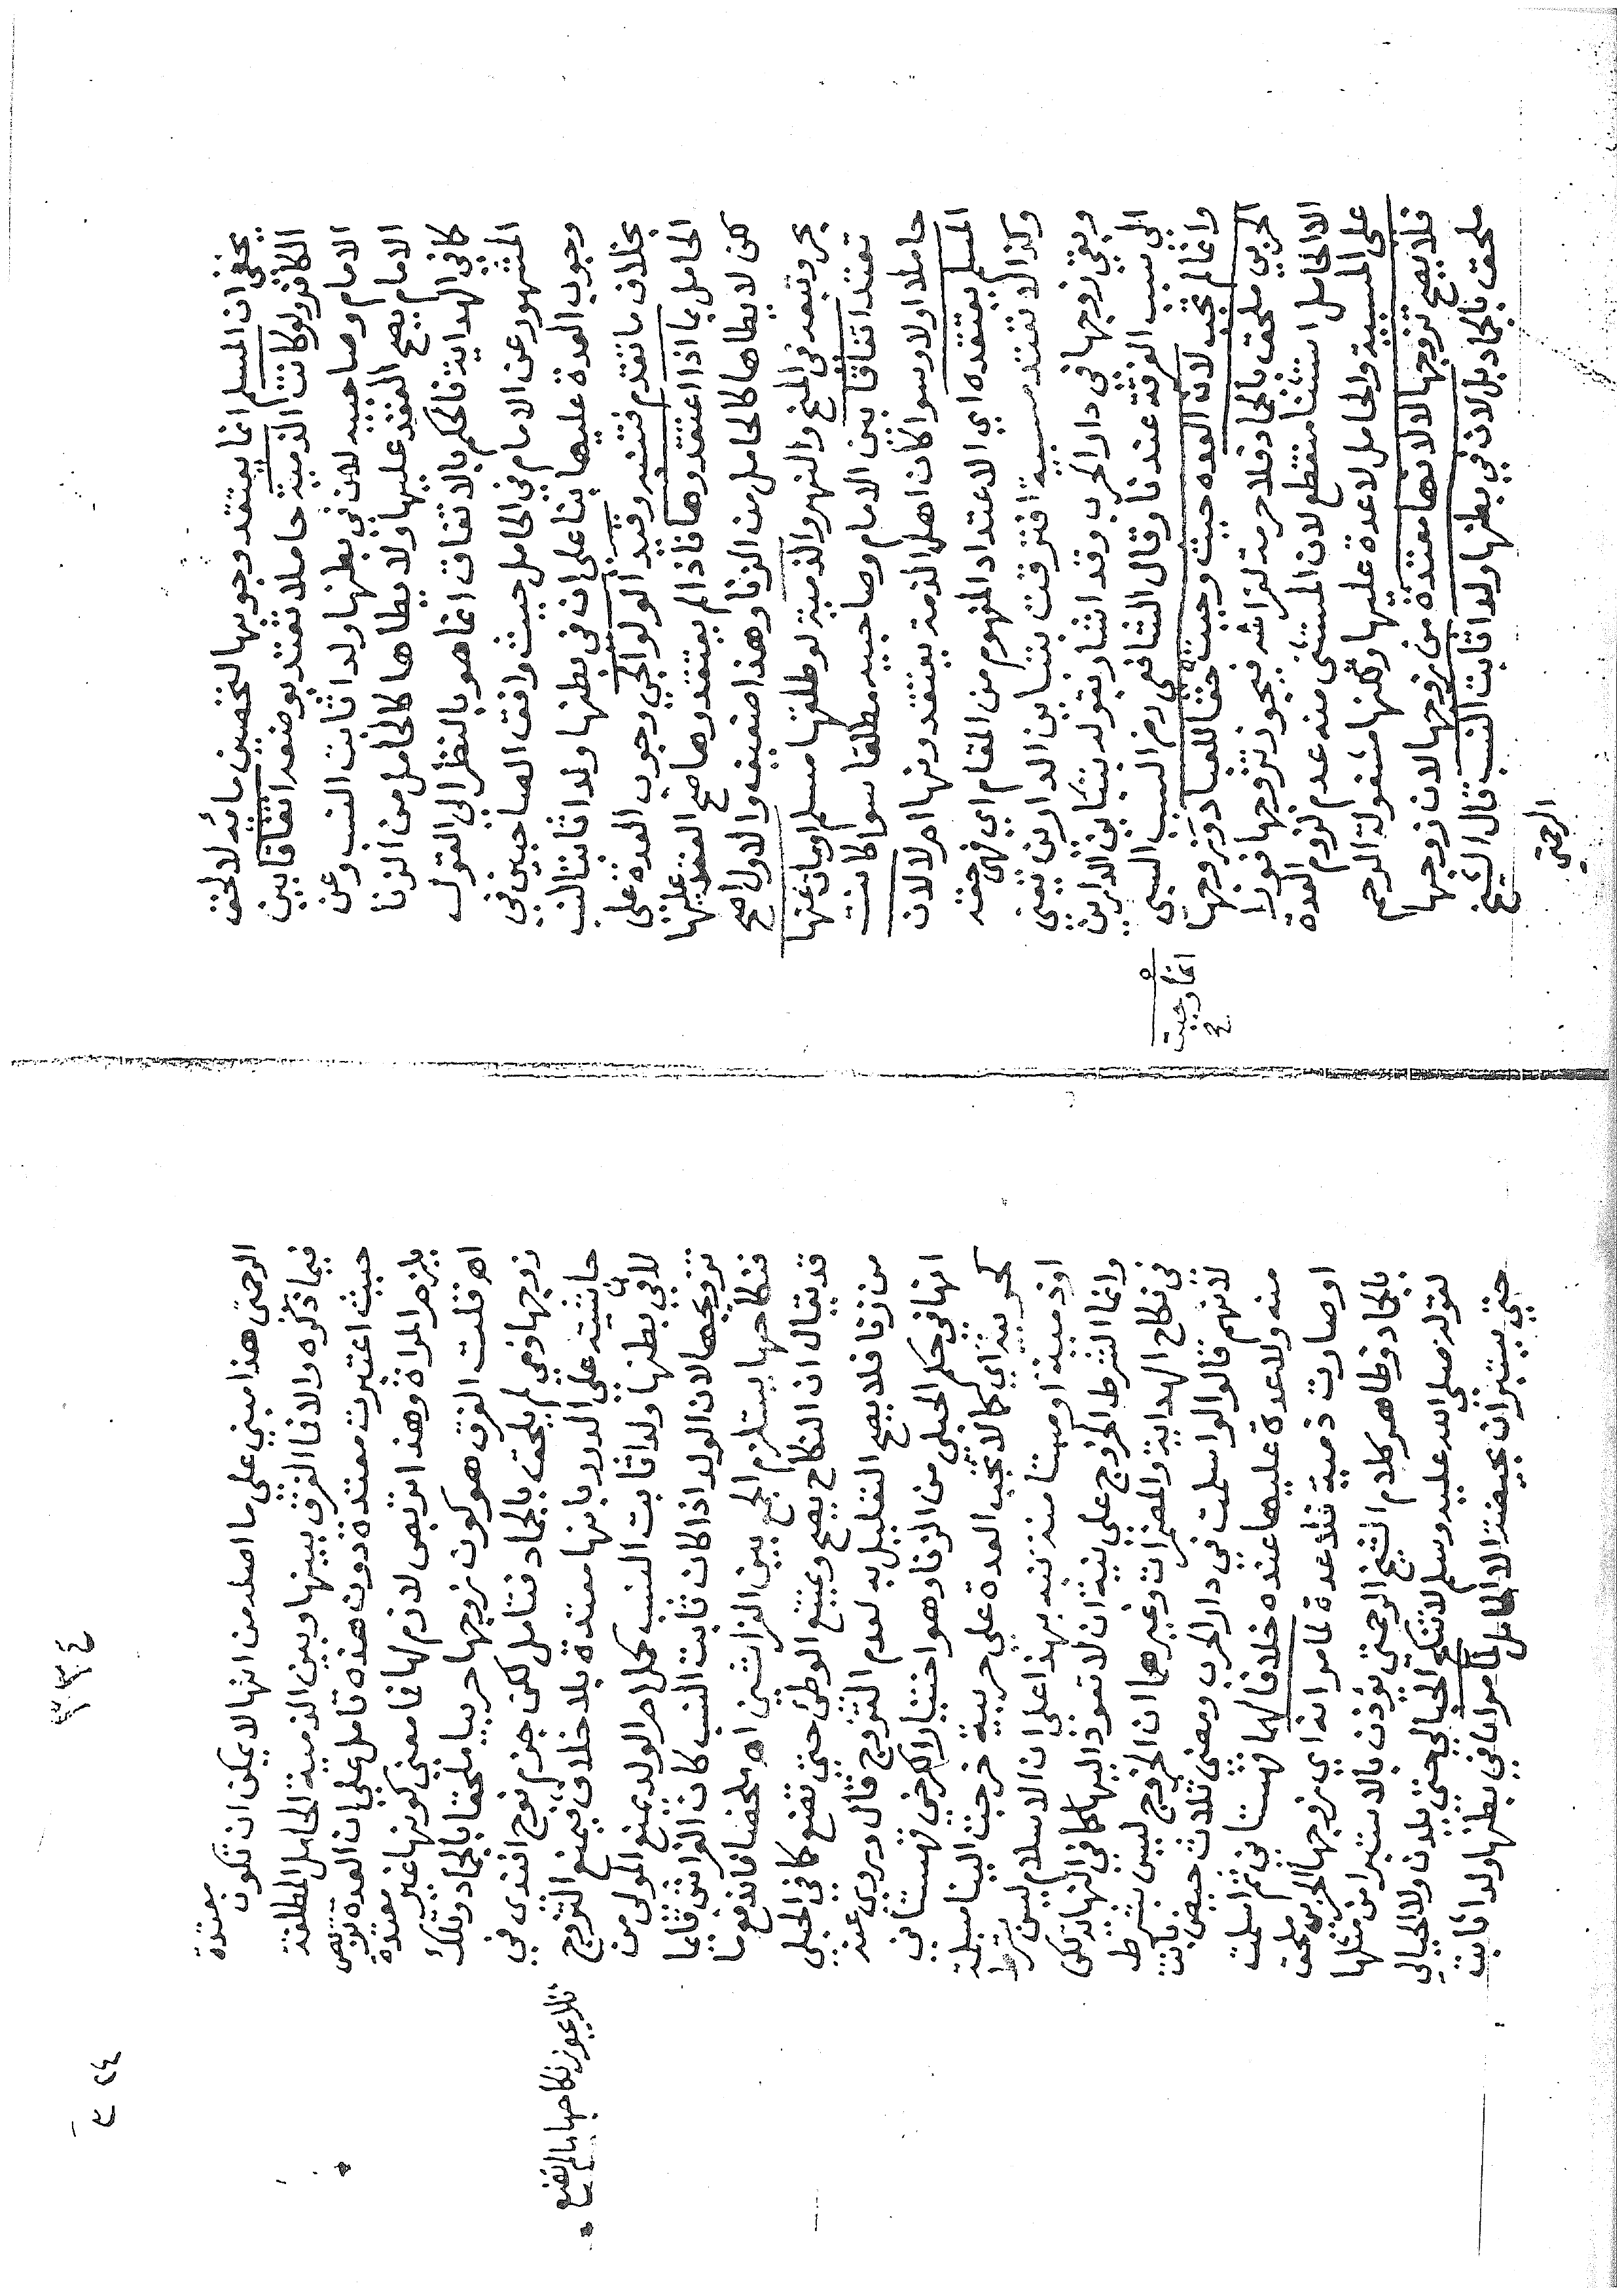 يخفى ان المسلم انما يعتقد وجوبها لتحصين مائه لا لحق
الكافر ولو كانت الذمية حاملا تعتد بوضعه اتفاقا بين
الامام وصاحبيه لان في بطنها ولدا ثابت النسب وعن
الامام يصح العقد عليها ولا يطاها كالحامل من الزنا
كما في الهداية فالحكم بالاتفاق انما هو بالنظر الى القول
المشهور عن الامام في الحامل حيث وافق الصاحبين في
وجوب العدة عليها بنا على ان في بطنها ولدا ثابت النسب
بخلاف ما تقدم فتنبه وقيد الولوالجي وجوب العدة على
الحامل بما اذا اعتقدوها فاذا لم يعتقدوها صح العقد عليها
لكن لا يطاها كالحامل من الزنا وهذا ضعيف والاول اصح
بحر وتبعه في المنح والنهر والذمية لو طلقها مسلم او مات عنها
تعتد اتفاقا بين الامام وصاحبيه مطلقا سوا كانت
حاملا او لا وسوا كان اهل الذمة يعتقدونها ام لا لان
المسلم يعتقده اي الاعتداد المفهوم من المقام اي فهي حقه
وكذا لا تعتد مسبية افترقت بتباين الدارين يعني
وبقي زوجها في دار الحرب وقد اشار بقوله بتباين الدارين
الى سبب الفرقة عندنا وقال الشافعي رح السبب السبى
وانما لم تجب لان العده حيث وجبت حقا للعباد وزوجها
انما وجبت صح
الحربي ملحق بالجماد فلا حرمة لفراشه فيجوز تزوجها فورا
الا الحامل استثنا منقطع لان المستثنى منه عدم لزوم العدة
على المسبية والحامل لا عدة عليها ولكنها مشغولة الرحم
فلا يصح تزوجها لا لانها معتدة من زوجها لان زوجها
ملحق بالجماد بل لان في بطنها ولدا ثابت النسب قال الشيخ
الرحمتي
الرحمتى هذا مبني على ما اصله من انها لا يمكن ان تكون معتدة
فيما ذكره والا فا الفرق بينها وبين الذمية الحامل المطلقة
حيث اعتبرت معتدة دون هذه تامل على ان العدة تربص
يلزم المراة وهذا تربص لازم لها فما معنى كونها غير معتدة
اه قلت الفرق هو كون زوجها حربيا ملحقا بالجماد وتلك
زوجها ذمي لم يلحق بالجماد فتامل لكن جزم نوح افندى في
حاشيته على الدرر بانها معتدة بلا خلاف فيمنع التزوج
فلا يجوز نكاحها ما لم تضع
لا في بطنها ولدا ثابت النسب كحمل ام الولد يمنع المولى من
تزويجها لان الولد اذا كان ثابت النسب كان الفراش قائما
فنكاحها يستلزم الجمع بين الفراشين اه ملخصا فاندفع ما
قد يقال ان النكاح يصح ويمتنع الوطئ حتى تضع كما في الحبلى
من زنا فلا يصح التعليل به لعدم التزوج قال وروى عنه
انها في حكم الحبلى من الزنا وهو اختيار الكرخي قهستاني
كحربية اي كما لا تجب العدة على حربية خرجت الينا مسلمة
او ذمية او مستامنة تنبه بهذا على ان الاسلام ليس بشرط
وانما الشرط الخروج على نية ان لا تعود اليها كما في النهاية لكن
في نكاح الهداية والمضمرات وغيرهما ان الخروج ليس بشرط
لانهم قالوا لو اسلمت في دار الحرب ومضى ثلاث حيض بانت
منه ولا عدة عليها عنده خلافا لهما قهستاني ثم اسلمت
او صارت ذمية فلا عدة لما مر انه اي زوجها الحربى ملحق
بالجماد وظاهر كلام الشيخ الرحمتي يؤذن بالاستبرا من مثلها
لقوله صلى الله عليه وسلم لا تنكح الحبالي حتى يلدن ولا الحيالى
حتى يستبران بحيضة الا الحامل لما مر ان في بطنها ولدا ثابت